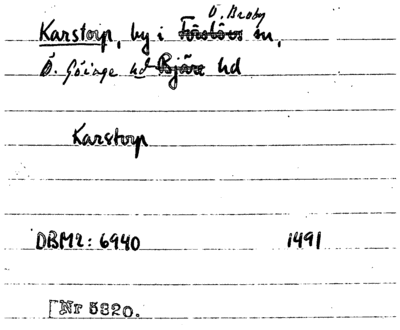 Ö. Broby
Karstorp, by i Förslöv sn,
Ö. Göinge hd Bjäre hd
Karstorp
DBM2: 6940 1491
[Nr 5820.